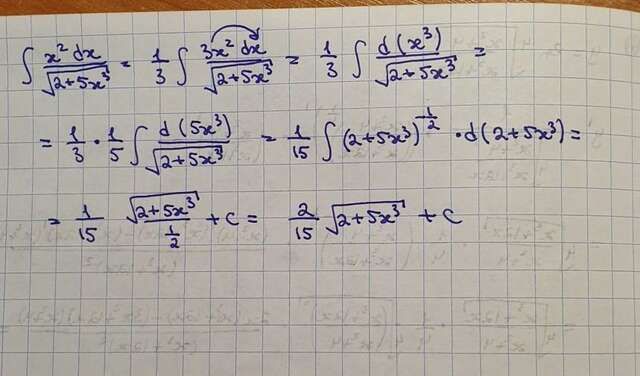 ∫ x² dx / √(2+5x³) = 1/3 ∫ 3x² dx / √(2+5x³) = 1/3 ∫ d(x³) / √(2+5x³) =
= 1/3 · 1/5 ∫ d(5x³) / √(2+5x³) = 1/15 ∫ (2+5x³)^(-1/2) · d(2+5x³) =
= 1/15 √(2+5x³) / (1/2) + c = 2/15 √(2+5x³) + c